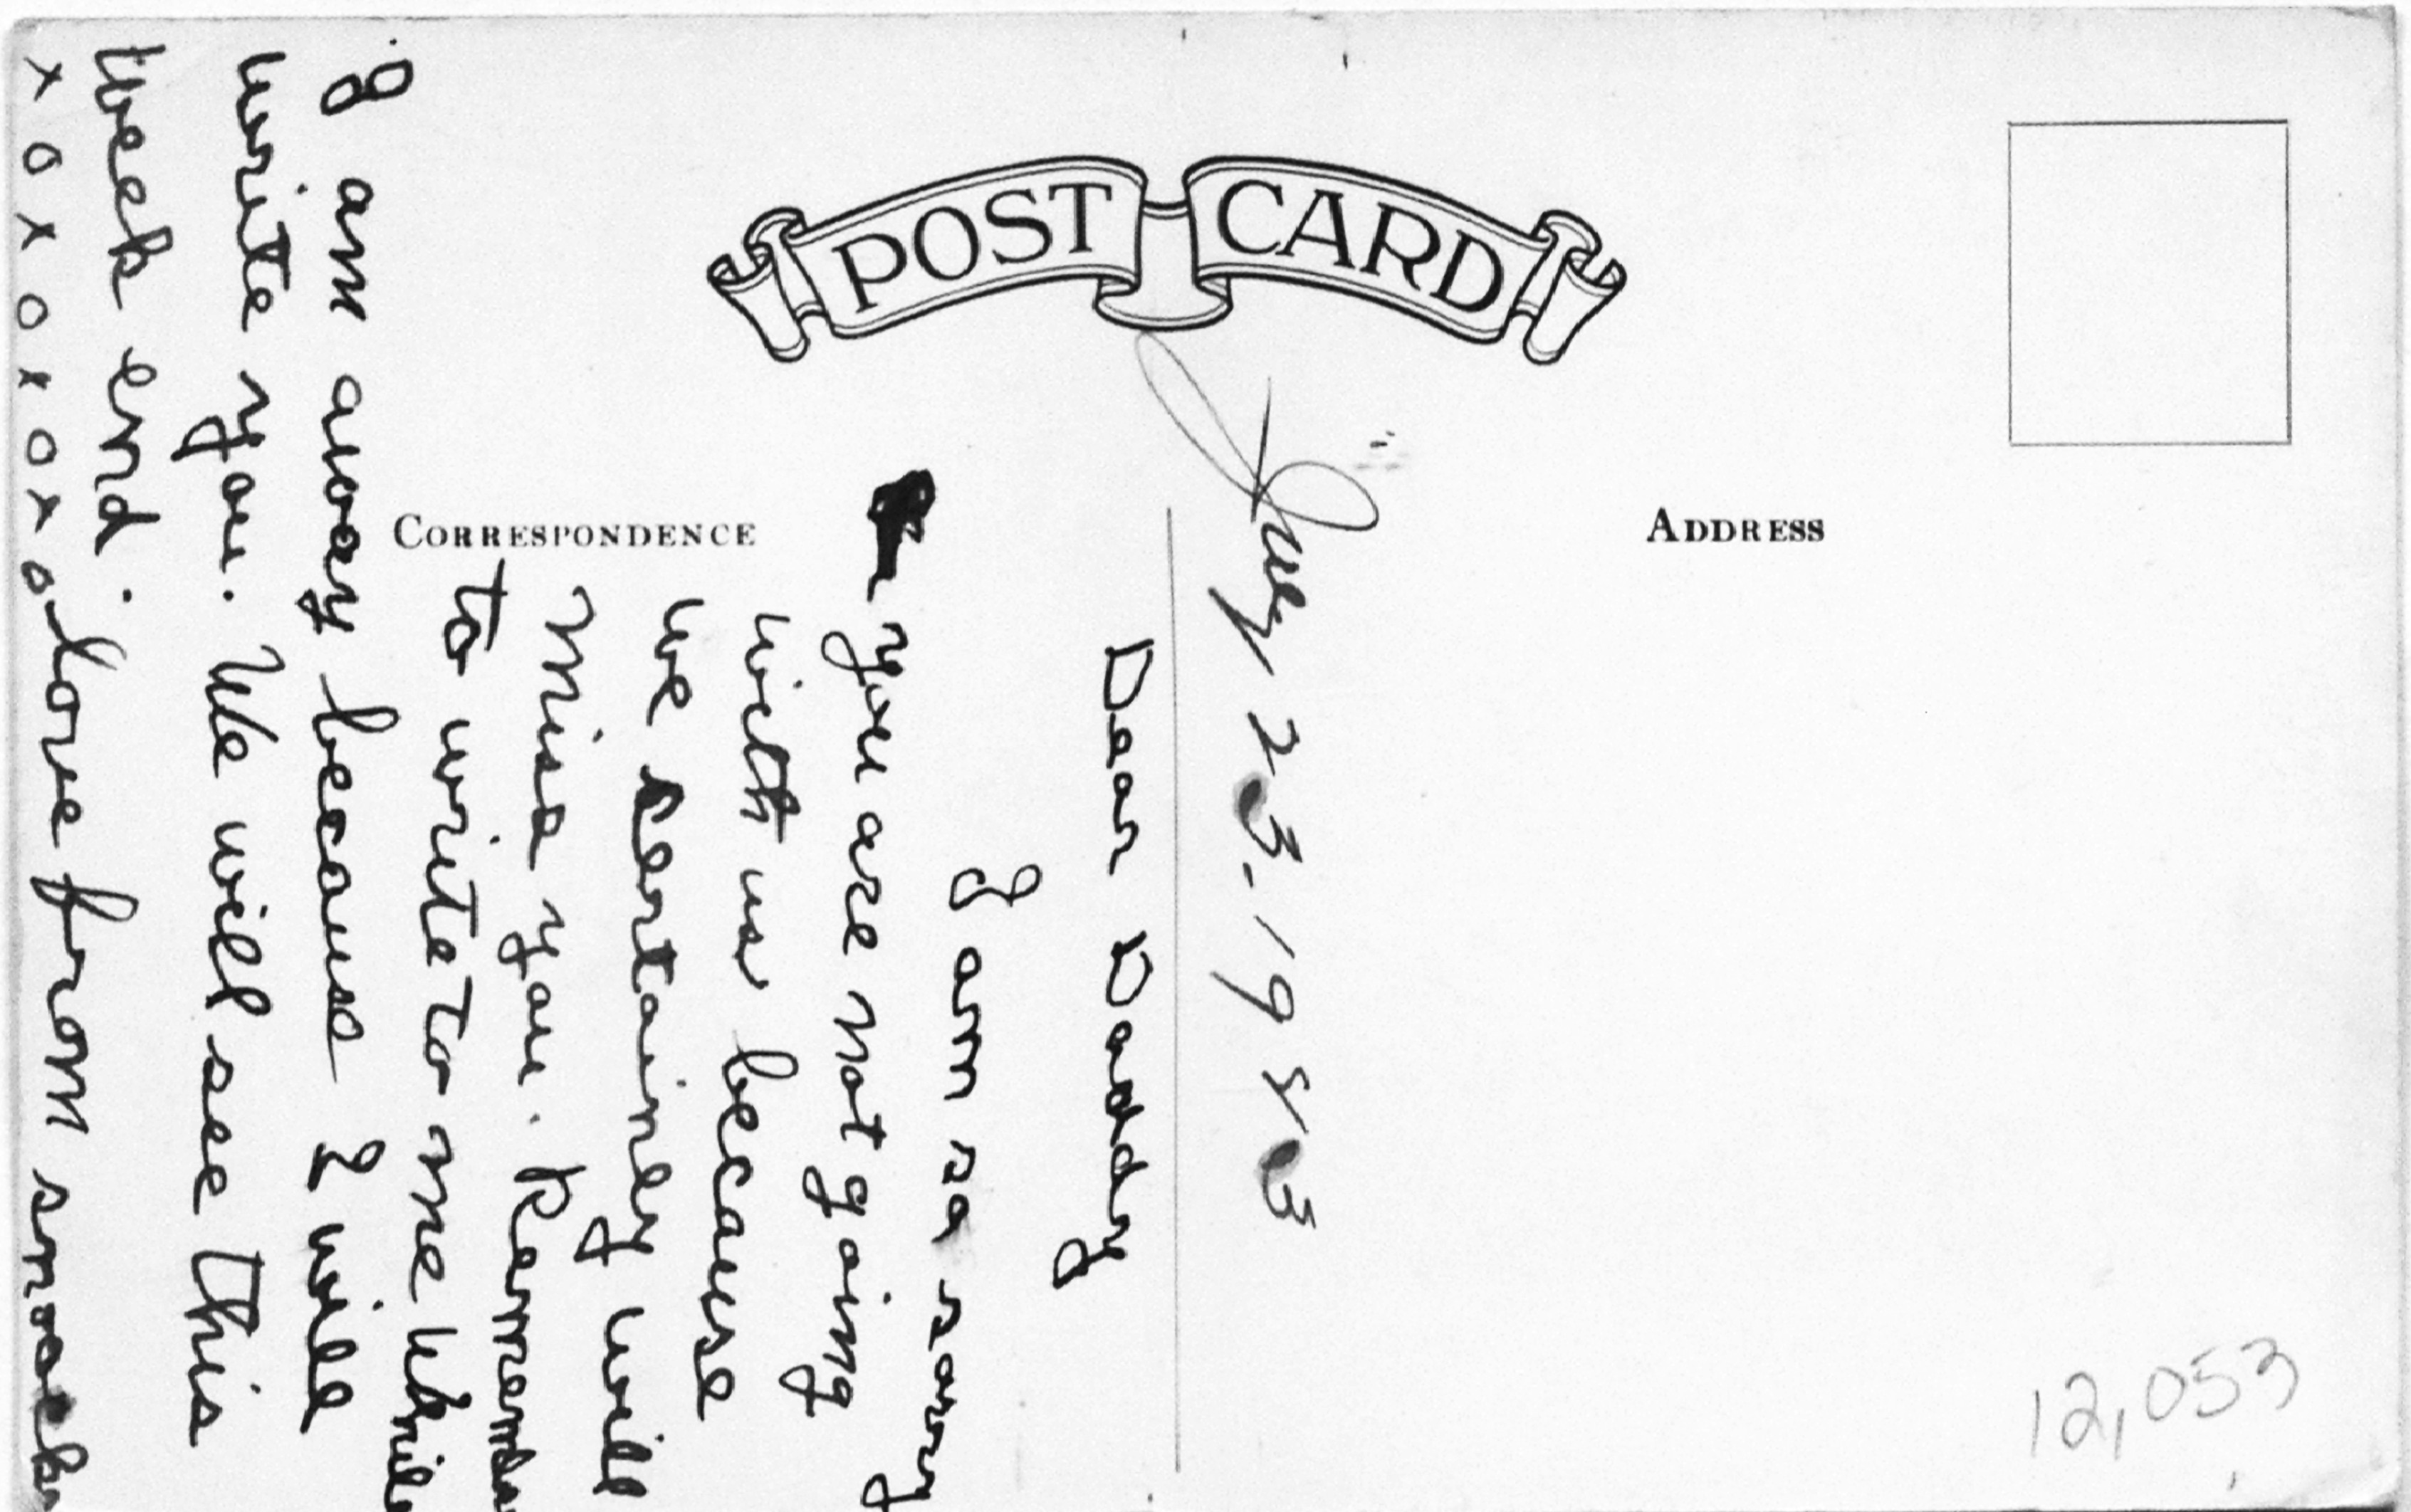 POST CARD
CORRESPONDENCE
ADDRESS
July 23. 1953
Dear Daddy
I am so sorry
you are not going
with us because
we certainly will
miss you. Remember
to write to me while
I am away because I will
write you. We will see this
week end.
x o x o x o x o love from
12,053